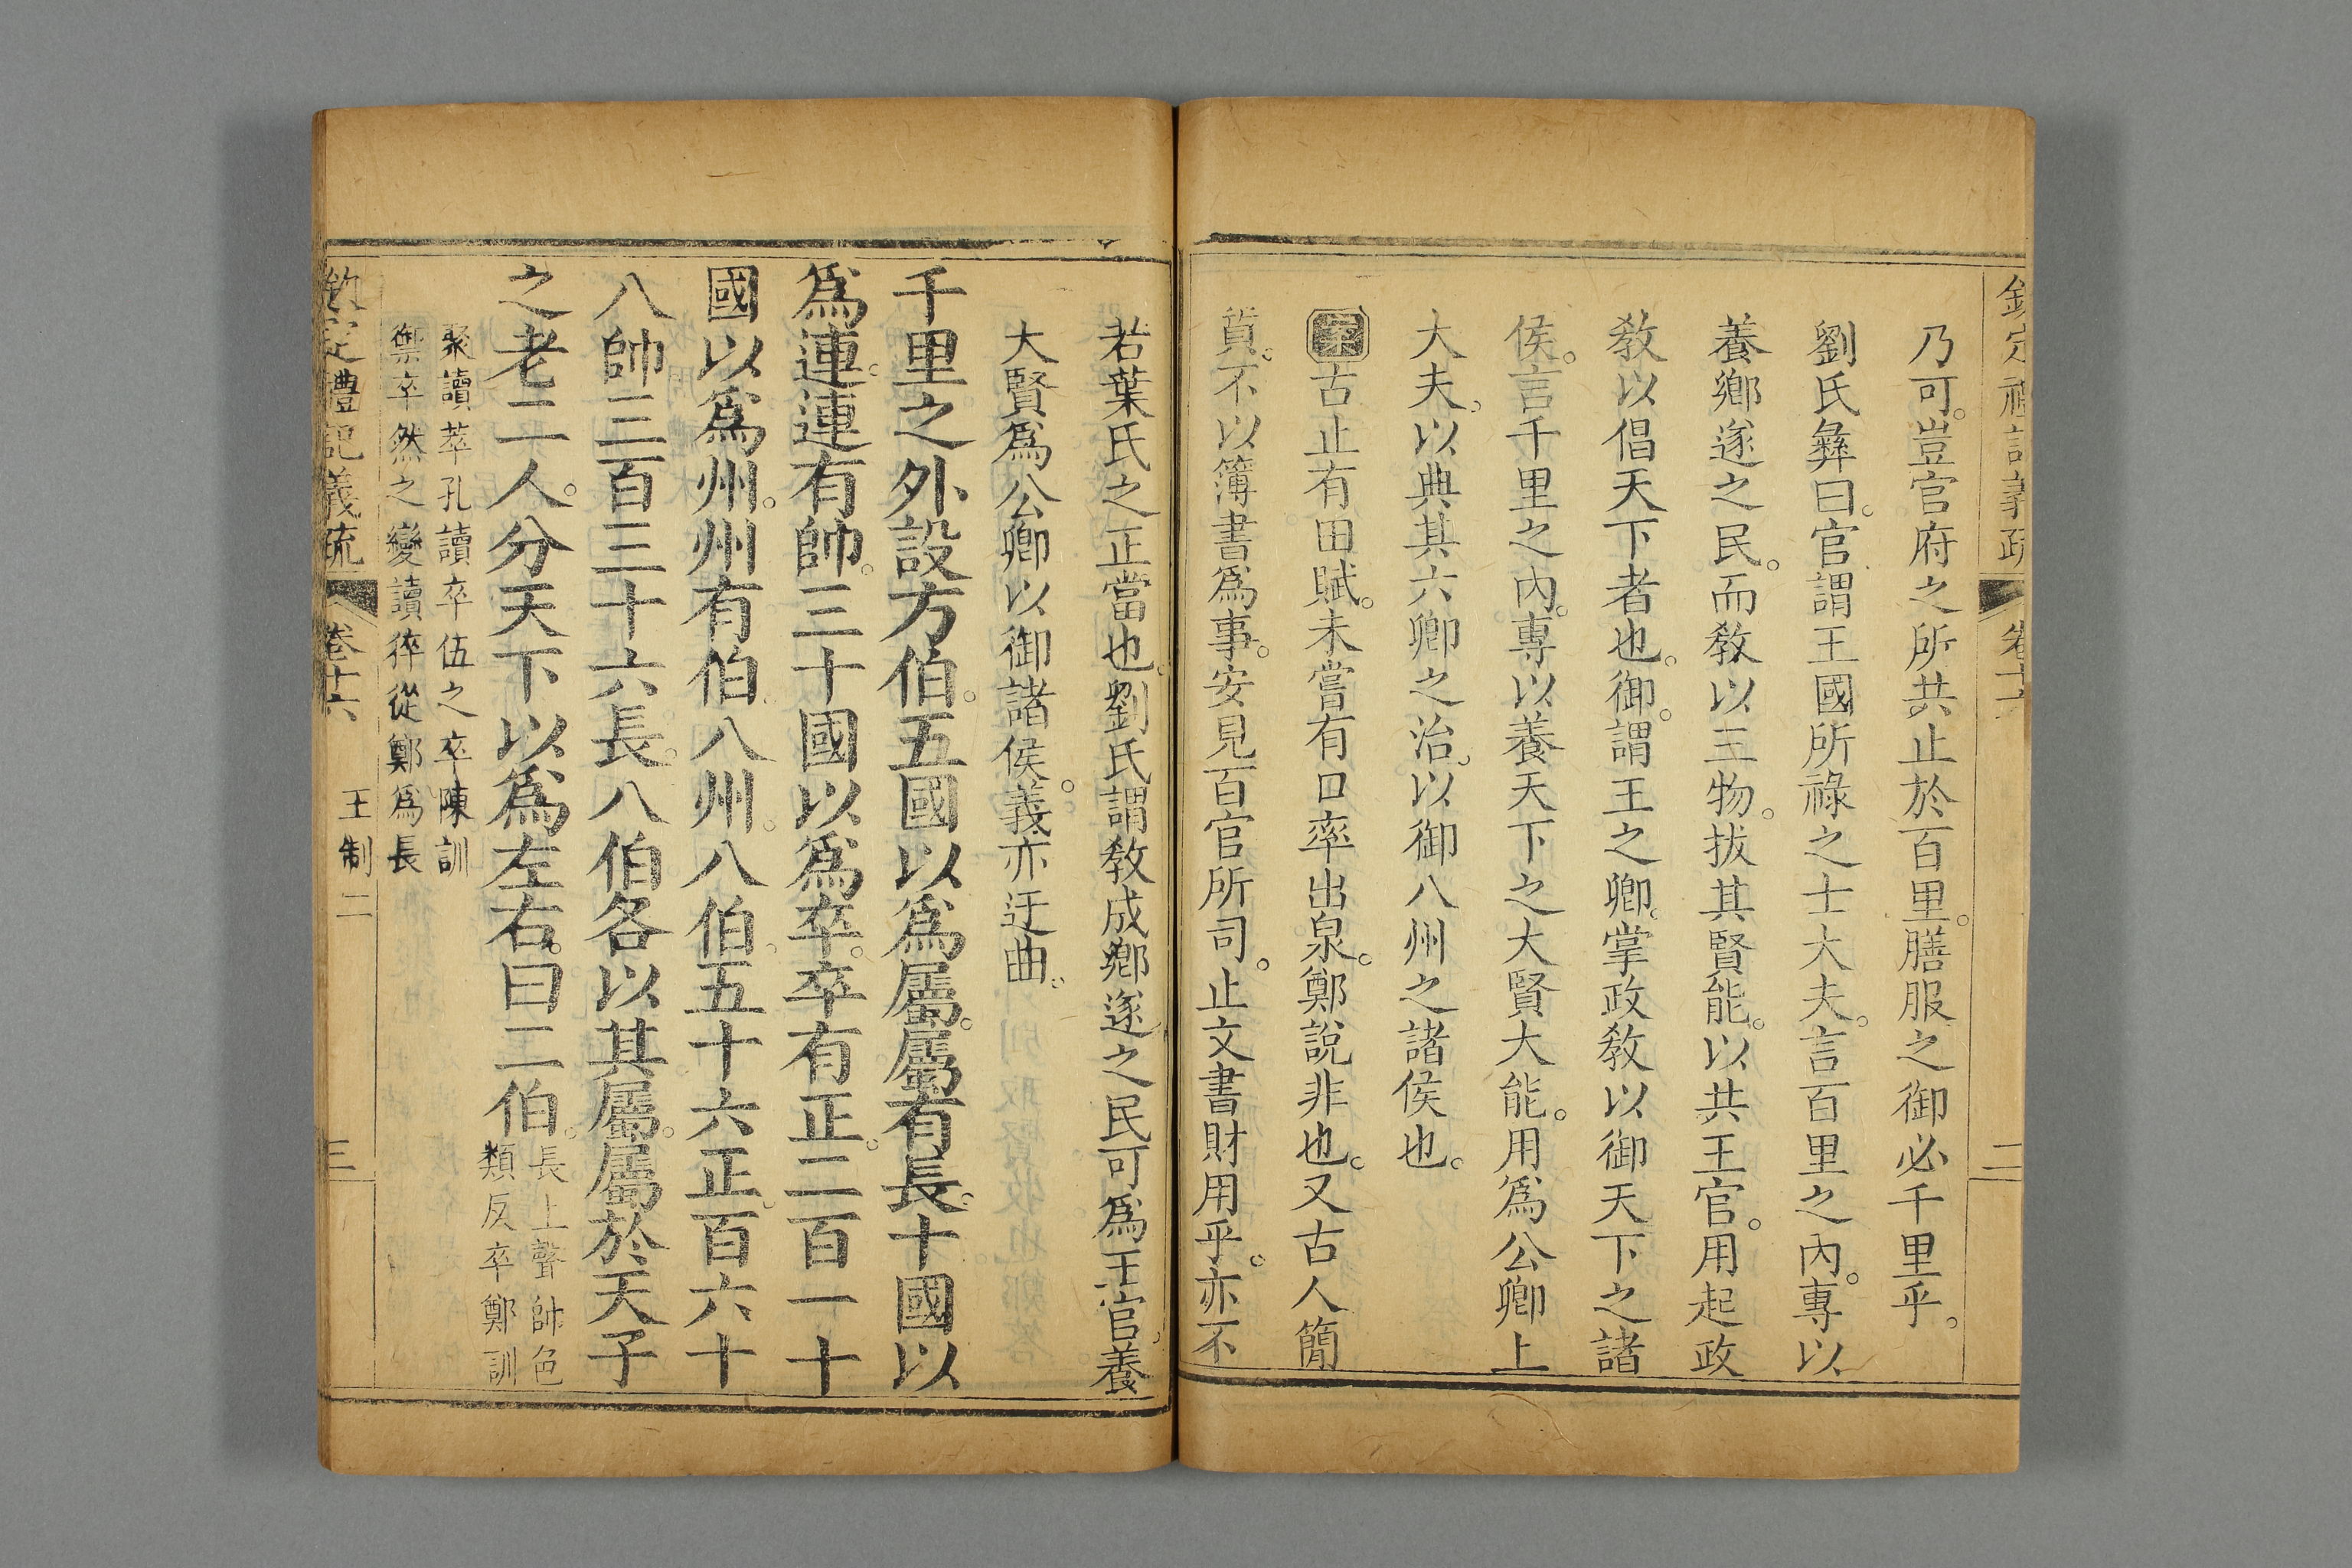 欽定禮記義疏 卷十六 二
乃可。豈官府之所共止於百里。膳服之御必千里乎。
劉氏彝曰。官謂王國所祿之士大夫。言百里之內。專以
養鄉遂之民。而敎以三物。拔其賢能。以共王官。用起政
敎以倡天下者也。御。謂王之卿。掌政敎以御天下之諸
侯。言千里之內。專以養天下之大賢大能。用爲公卿上
大夫。以典其六卿之治。以御八州之諸侯也。
案古止有田賦。未嘗有口率出泉。鄭說非也。又古人簡
質。不以簿書爲事。安見百官所司。止文書財用乎。亦不
若葉氏之正當也。劉氏謂敎成鄉遂之民可爲王官。養
大賢爲公卿以御諸侯。義亦迂曲。
千里之外設方伯。五國以爲屬。屬有長。十國以
爲連。連有帥。三十國以爲卒。卒有正。二百一十
國以爲州。州有伯。八州。八伯。五十六正。百六十
八帥。三百三十六長。八伯各以其屬。屬於天子
之老二人。分天下以爲左右。曰二伯。
長上聲帥色
類反卒鄭訓
聚讀萃孔讀卒伍之卒陳訓
禦卒然之變讀猝從鄭爲長
欽定禮記義疏 卷十六 王制二 三